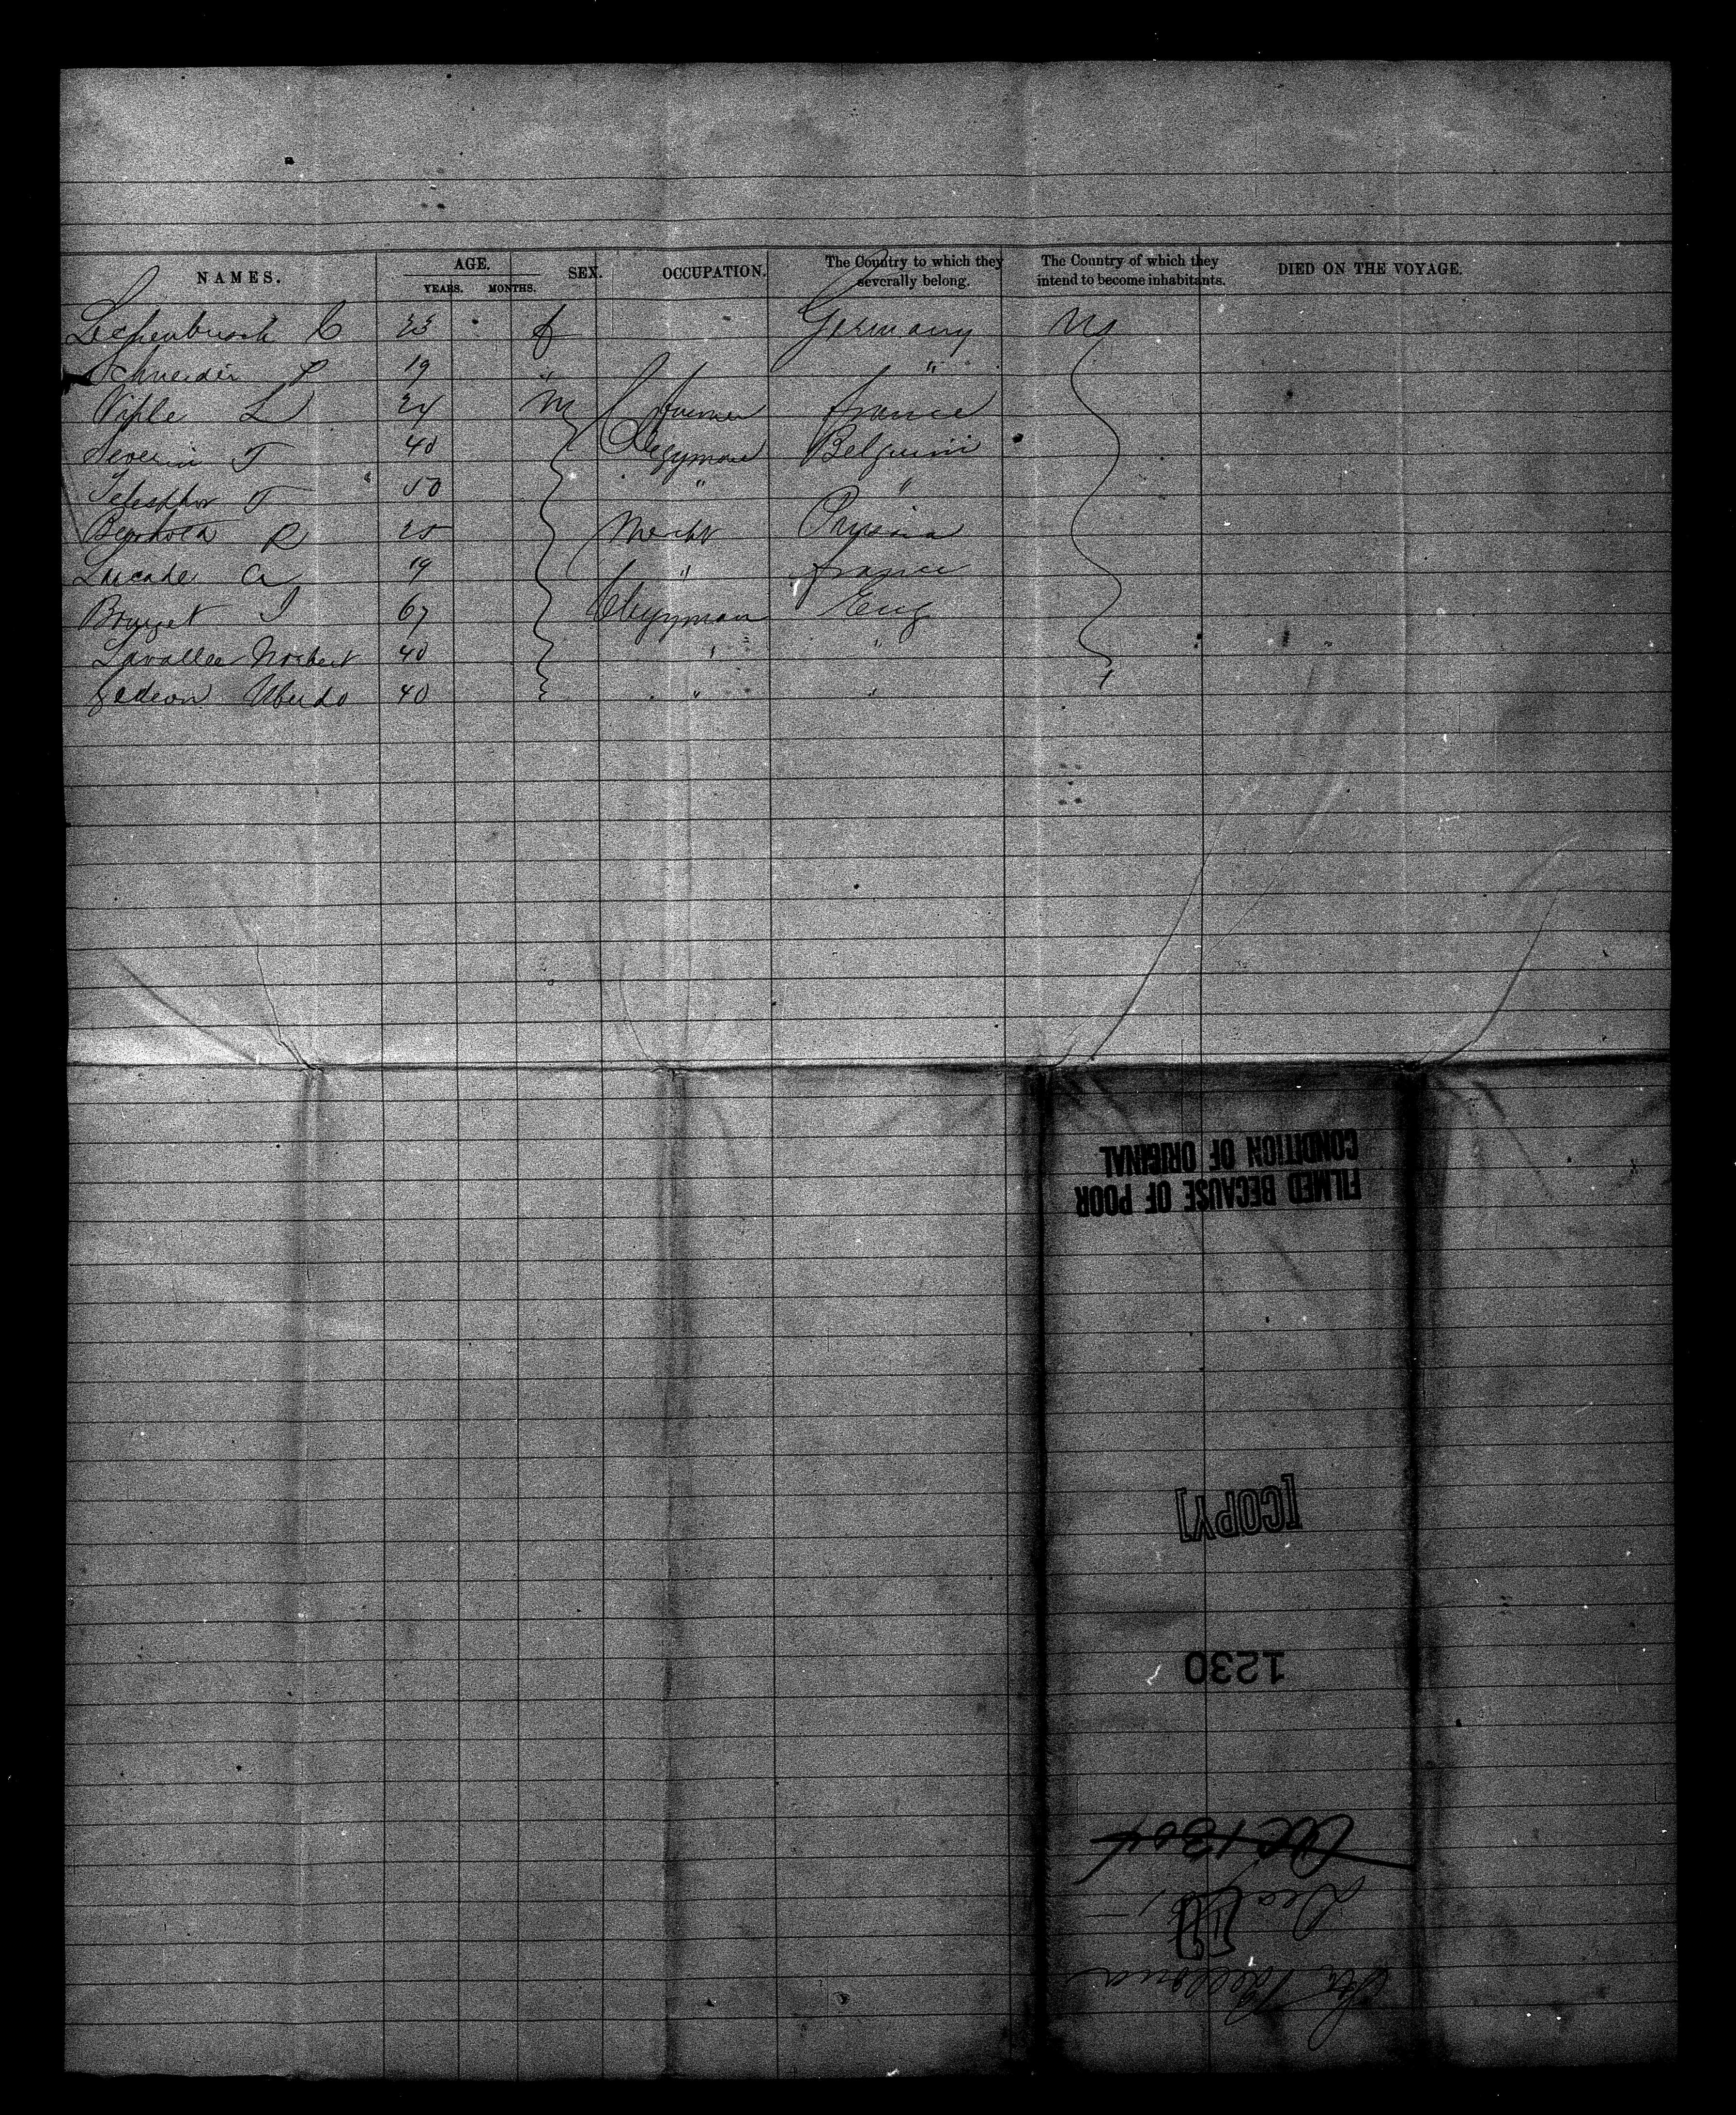 NAMES. AGE. SEX. OCCUPATION. The Country to which they severally belong. The Country of which they intend to become inhabitants. DIED ON THE VOYAGE.
YEARS. MONTHS.
C 23 f Germany US
Schneider P 19 " "
Viple L 24 M farmer France
Severin T 40 Clegyman Belguim
T 50 " "
R 25 Mercht Prussia
Lucade A 19 " France
Bourget I 67 Clegyman Eng
Lavallee Norbert 40 " "
Gedeon 40 " "
FILMED BECAUSE OF POOR
CONDITION OF ORIGINAL
[COPY]
1230
1304
Str Bellona